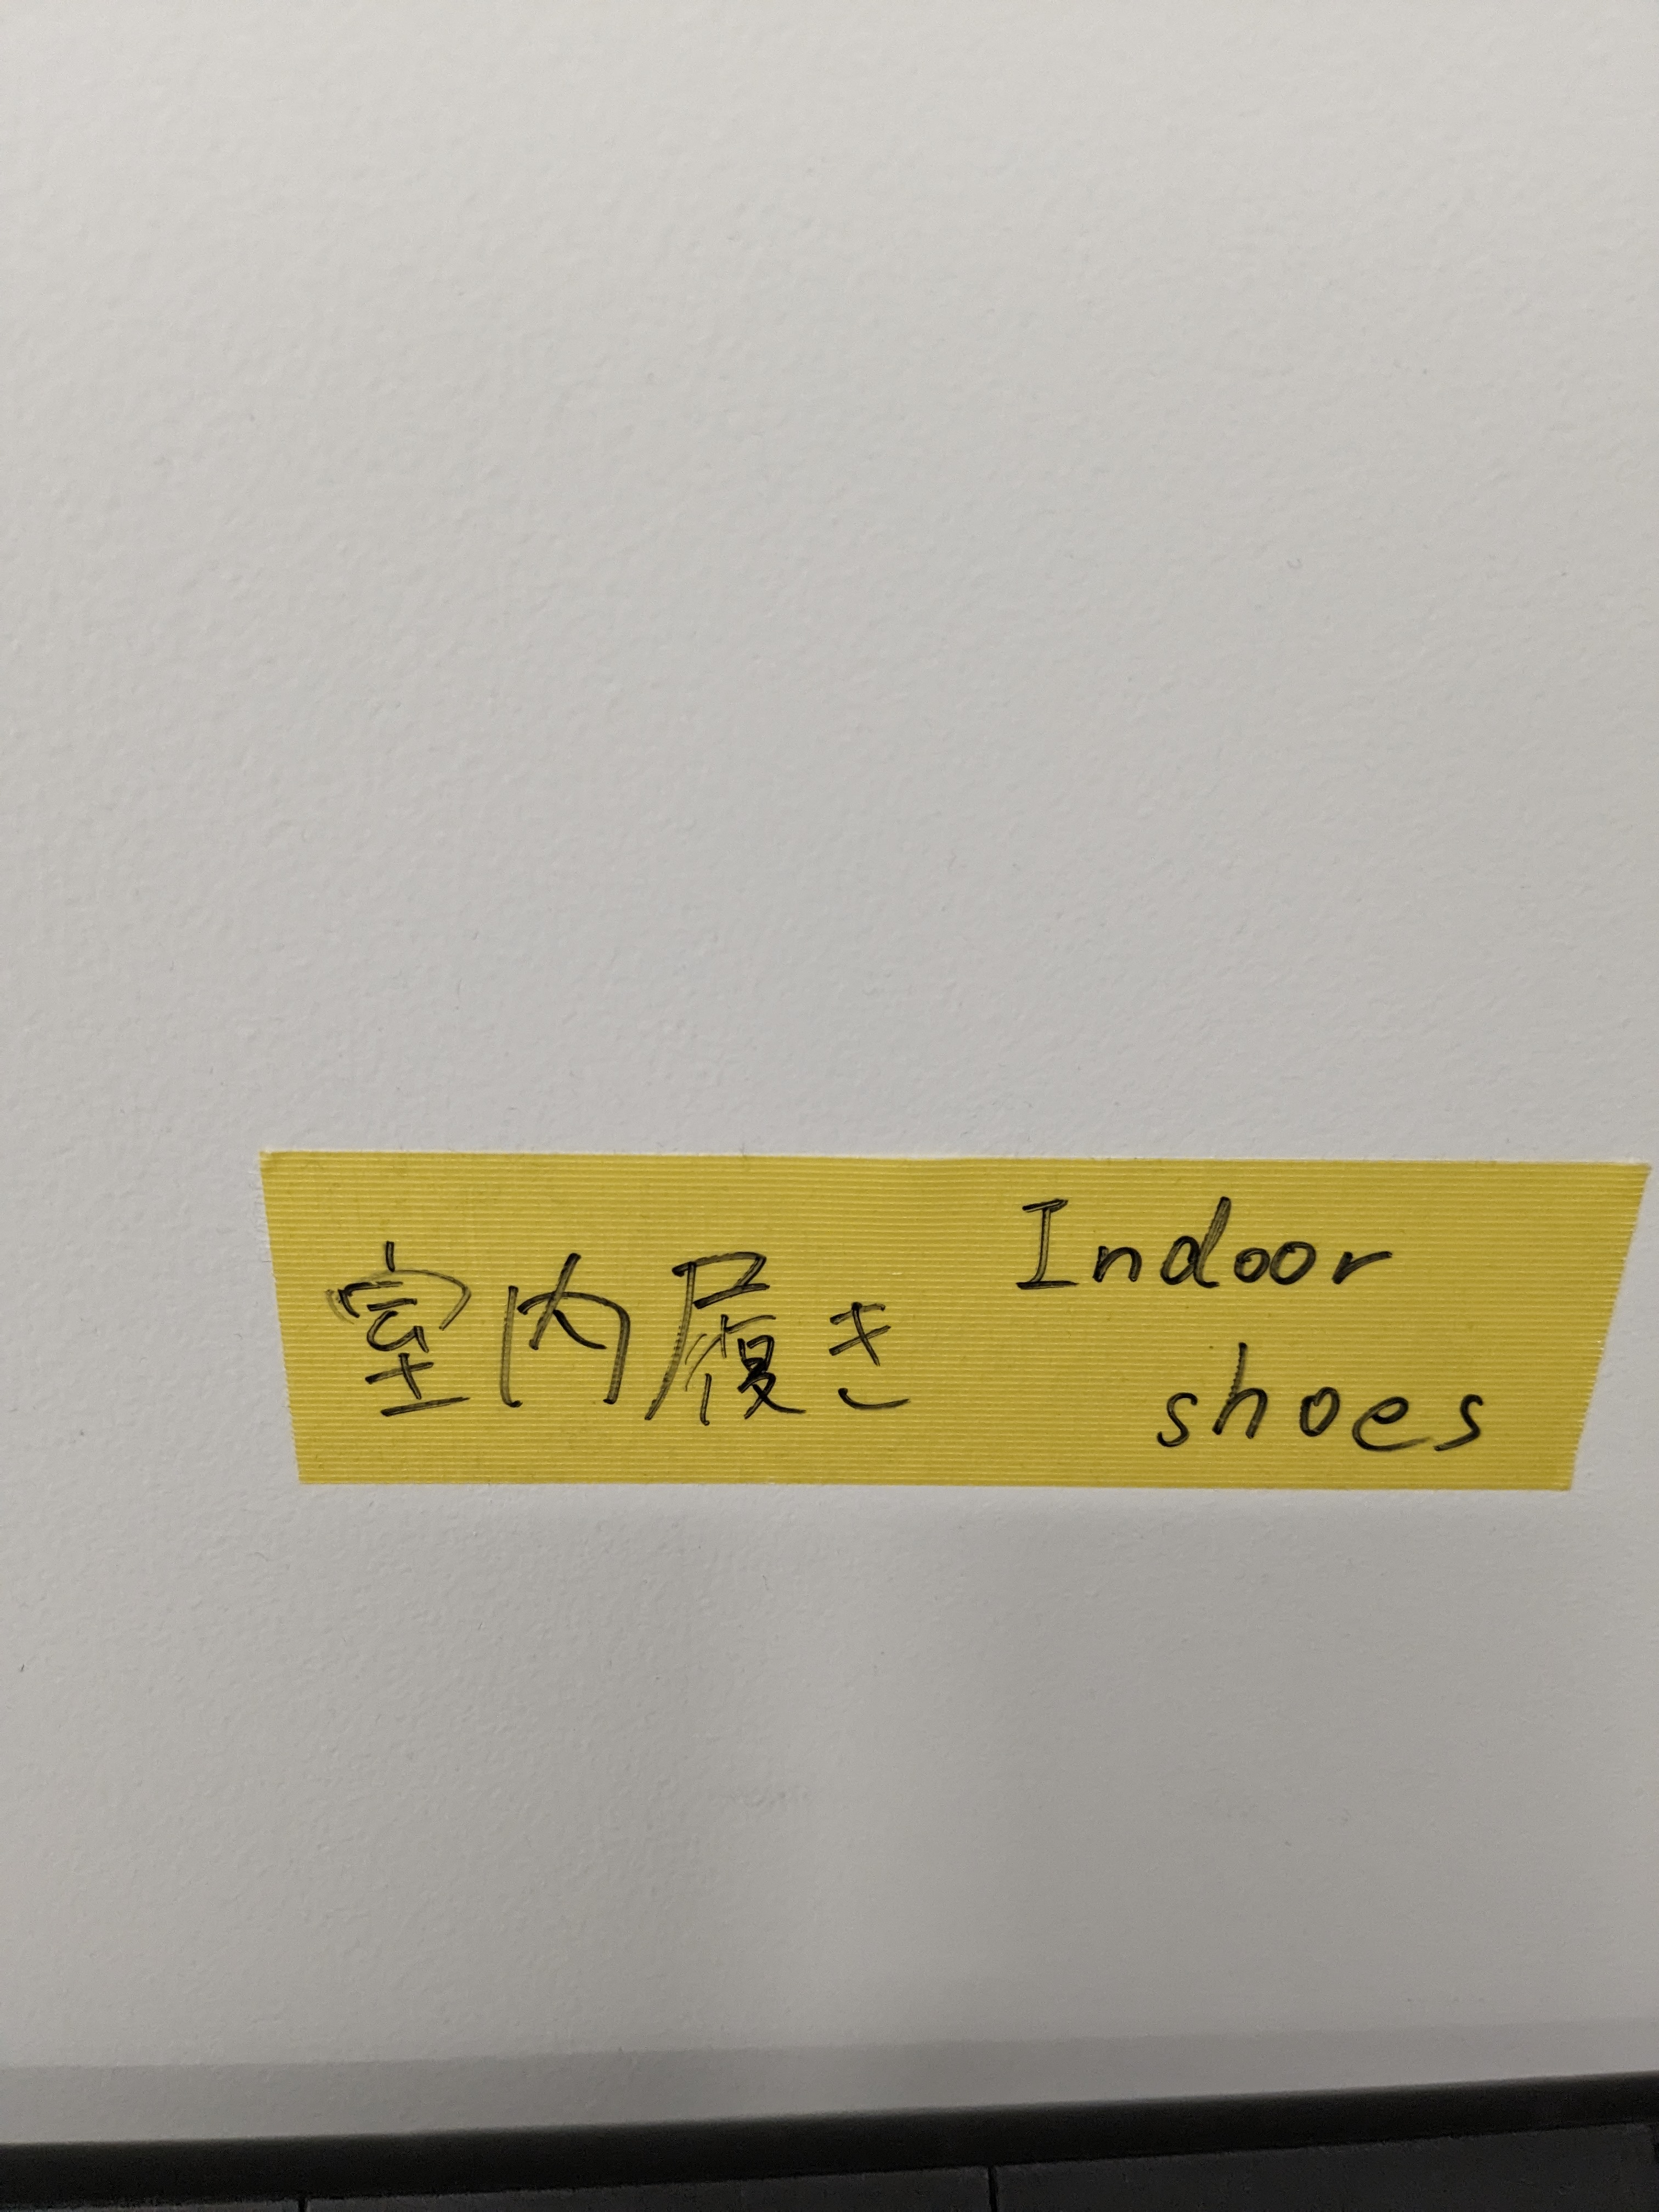 室内履き
Indoor
shoes